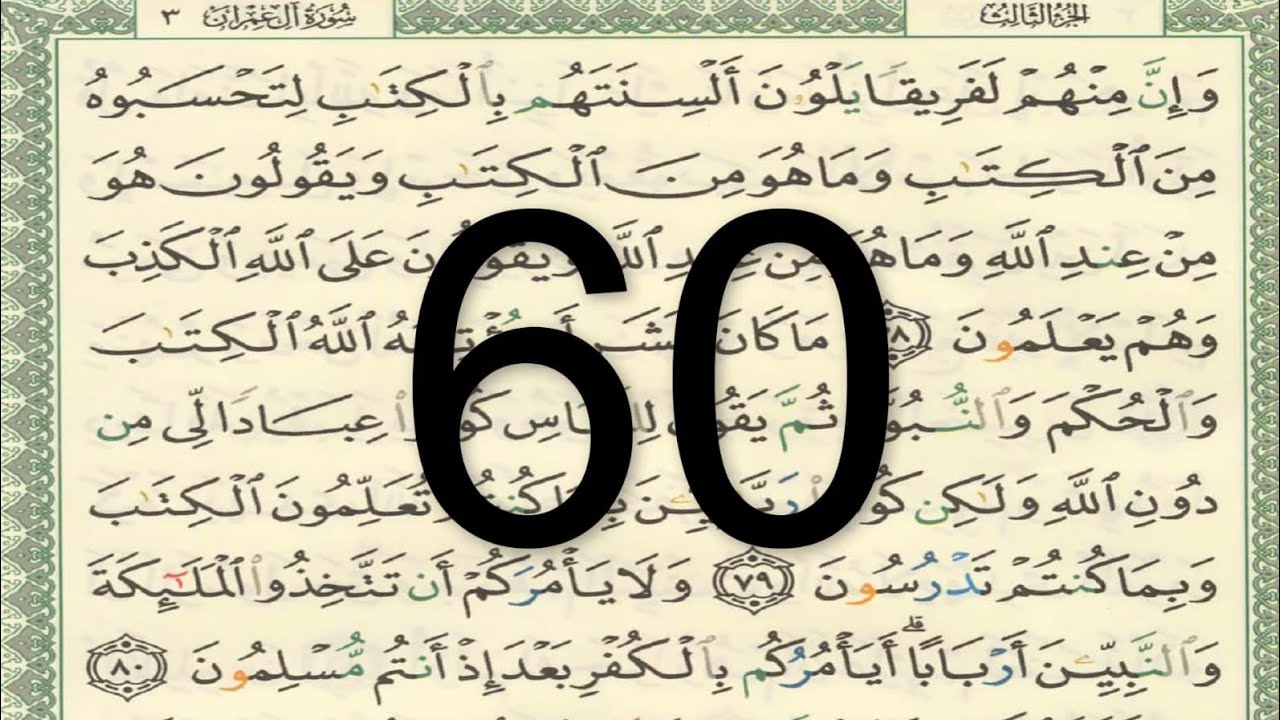 الجُزْءُ الثَّالِثُ
سُورَةُ آلِ عِمْرَانَ ٣
وَإِنَّ مِنْهُمْ لَفَرِيقًا يَلْوُۥنَ أَلْسِنَتَهُم بِٱلْكِتَٰبِ لِتَحْسَبُوهُ
مِنَ ٱلْكِتَٰبِ وَمَا هُوَ مِنَ ٱلْكِتَٰبِ وَيَقُولُونَ هُوَ
مِنْ عِندِ ٱللَّهِ وَمَا مِنْ عَلَى ٱللَّهِ ٱلْكَذِبَ
وَهُمْ يَعْلَمُونَ مَا كَانَ ٱللَّهُ ٱلْكِتَٰبَ
وَٱلْحُكْمَ ثُمَّ عِبَادًا لِّى مِن
دُونِ ٱللَّهِ وَلَٰكِن تُعَلِّمُونَ ٱلْكِتَٰبَ
وَبِمَا كُنتُمْ تَدْرُسُونَ ٧٩ وَلَا يَأْمُرَكُمْ أَن تَتَّخِذُوا۟ ٱلْمَلَٰٓئِكَةَ
وَٱلنَّبِيِّۦنَ أَرْبَابًا ۗ أَيَأْمُرُكُم بِٱلْكُفْرِ بَعْدَ إِذْ أَنتُم مُّسْلِمُونَ ٨٠
60